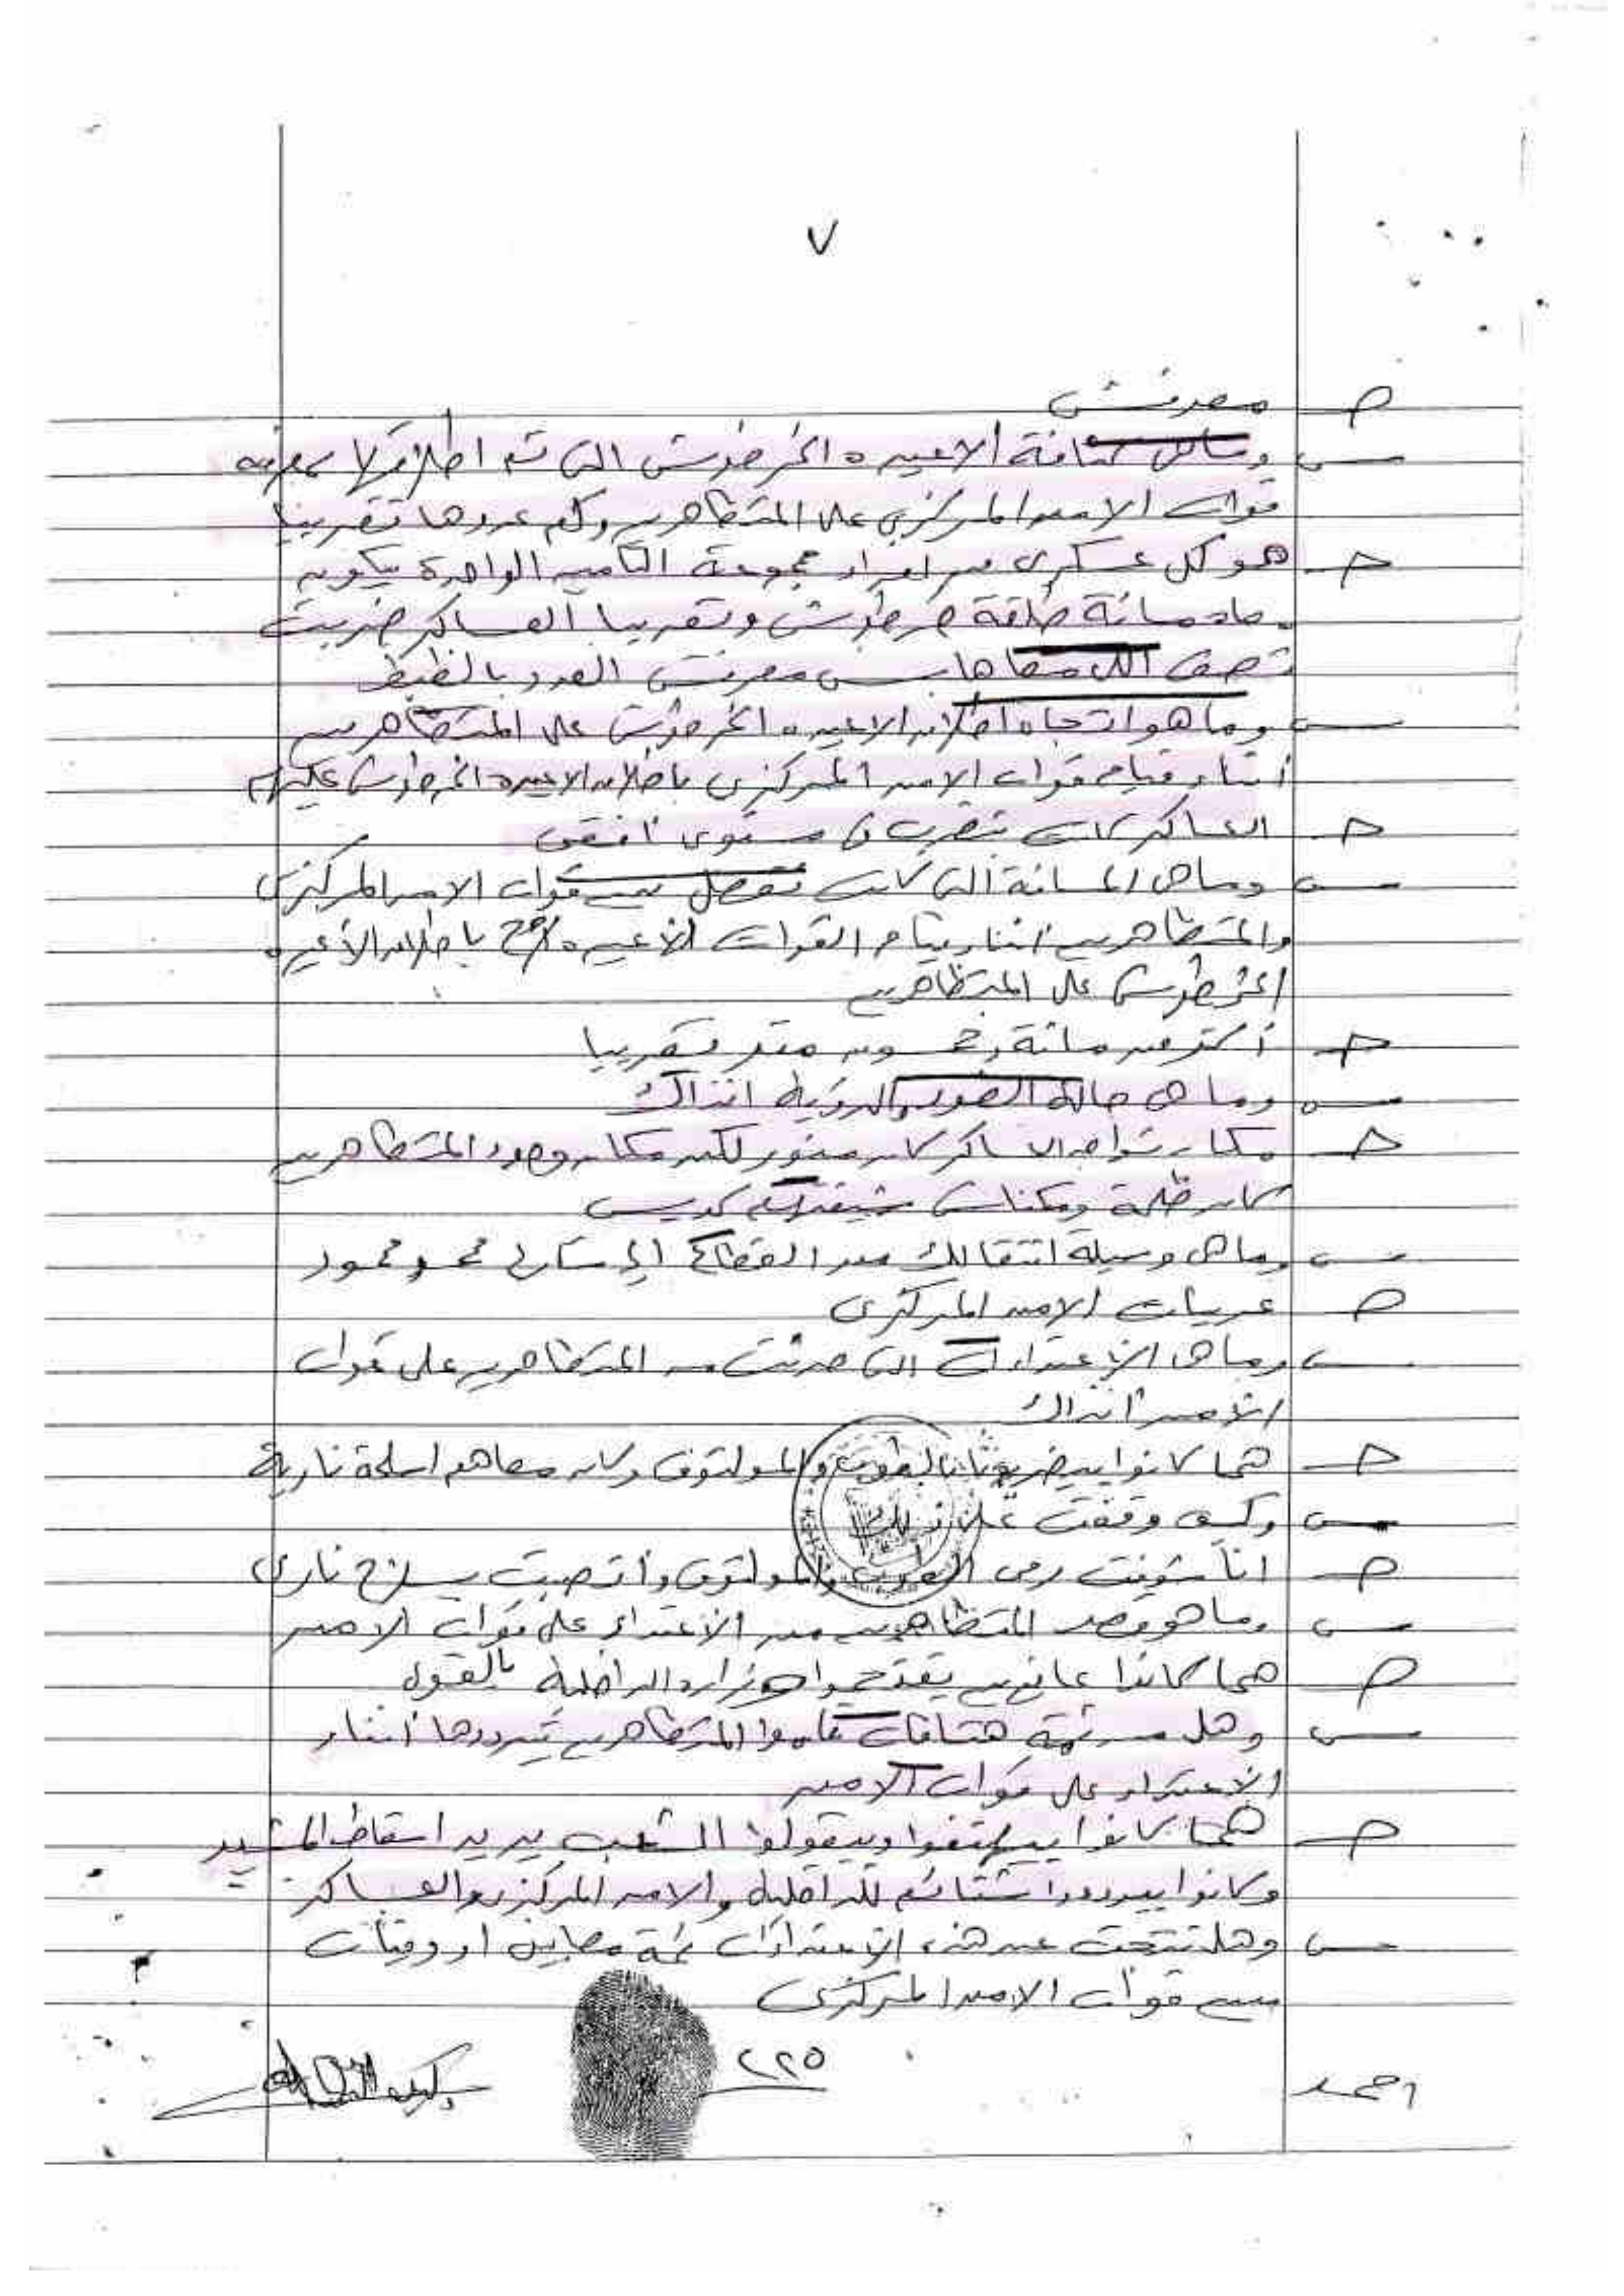 ٧
ج معرفش
س وما هى كثافة الاعيره الخرطوش التى تم اطلاقها بمعرفه
قوات الامن المركزى على المتظاهرين وكم عددها تقريبا
ج هو كل عسكرى من افراد مجموعة التأمين الواحدة بيكون
معاه مائة طلقة خرطوش وتقريبا العساكر ضربت
نصف اللى معاها بس معرفش العدد بالظبط
س وما هو اتجاه اطلاق الاعيره الخرطوش على المتظاهرين
أثناء قيام قوات الامن المركزى باطلاق الاعيره الخرطوش عليهم
ج العساكر كانت بتضرب فى مستوى افقى
س وما هى المسافة التى كانت تفصل بين قوات الامن المركزى
والمتظاهرين اثناء قيام القوات الأعيره باطلاق الأعيره
الخرطوش على المتظاهرين
ج أكتر من مائة وخمسون متر تقريبا
س وما هى حالة الضوء والرؤية انذاك
ج مكان تواجد العساكر كان منور لكن مكان وجود المتظاهرين
كان ضلمة ومكناش شيفنهم كويس
س وما هى وسيلة انتقالك من القطاع الى شارع محمد محمود
ج عربيات الامن المركزى
س وما هى الاعتداءات التى حدثت من المتظاهرين على قوات
الأمن انذاك
ج هما كانوا بيضربونا بالطوب والمولتوف وكان معاهم اسلحة نارية
س وكيف وقفت على ذلك
ج انا شوفت رمى الطوب والمولتوف وأتصبت بسلاح نارى
س وما هو قصد المتظاهرين من الأعتداء على قوات الامن
ج هما كانوا عايزين يقتحموا وزارة الداخلية بالقول
س وهل من ثمة هتافات قاموا المتظاهرين بترددها أثناء
الاعتداء على قوات الامن
ج هما كانوا بيهتفوا وبيقولوا الشعب يريد اسقاط المشير
وكانوا بيرددوا شتائم للداخلية والامن المركزى والعساكر
س وهل نتجت عن هذه الاعتداءات ثمة مصابين او وفيات
بين قوات الامن المركزى
احمد
٢٢٥